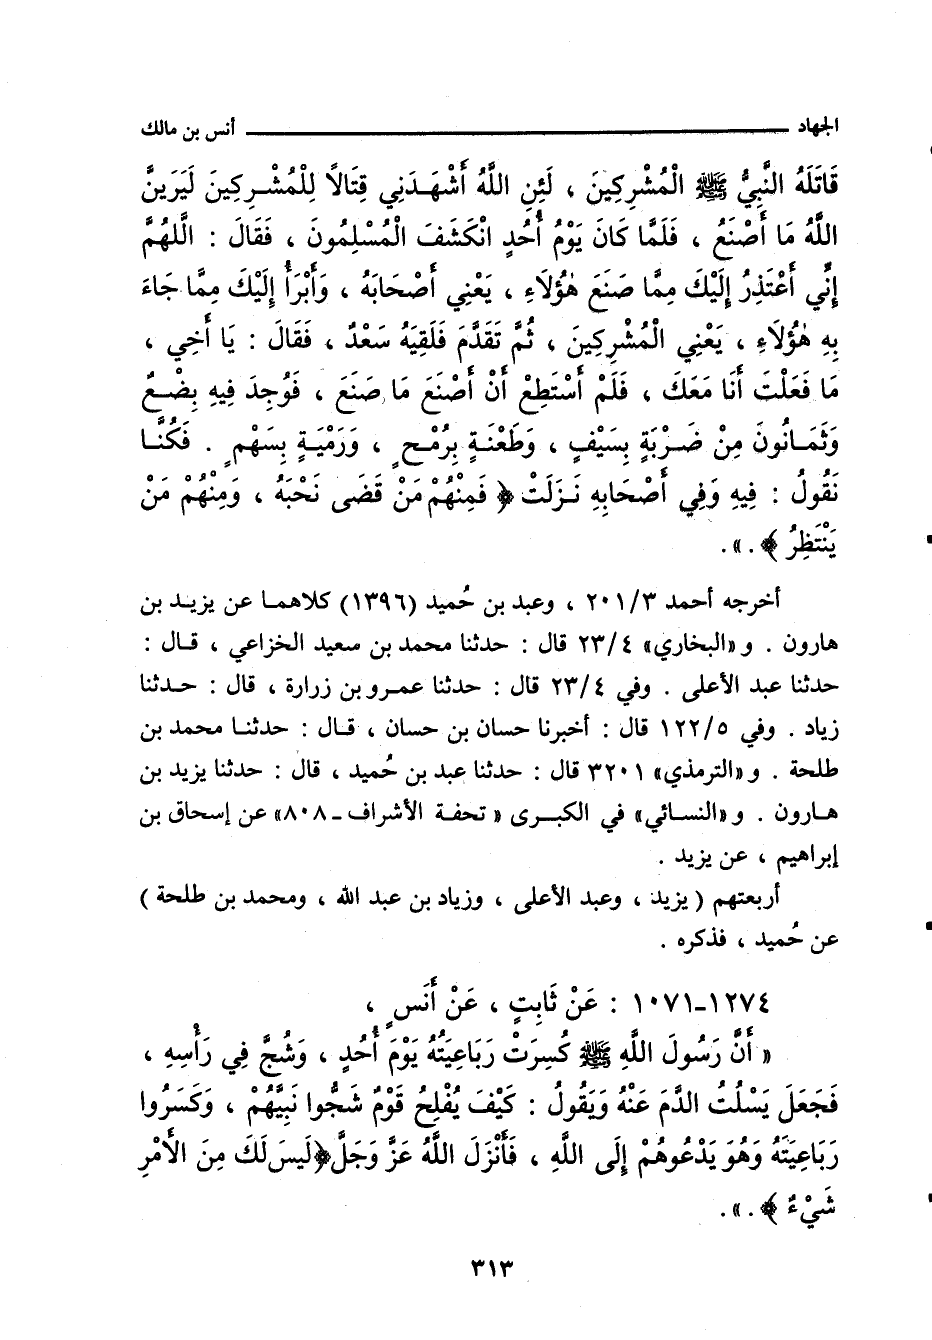 الجهاد ــــــــــــــــــــ أنس بن مالك
قَاتَلَهُ النَّبِيُّ ﷺ الْمُشْرِكِينَ ، لَئِنِ اللَّهُ أَشْهَدَنِي قِتَالاً لِلْمُشْرِكِينَ لَيَرَيَنَّ
اللَّهُ مَا أَصْنَعُ ، فَلَمَّا كَانَ يَوْمُ أُحُدٍ انْكَشَفَ الْمُسْلِمُونَ ، فَقَالَ : الَّلهُمَّ
إِنِّي أَعْتَذِرُ إِلَيْكَ مِمَّا صَنَعَ هٰؤُلَاءِ ، يَعْنِي أَصْحَابَهُ ، وَأَبْرَأُ إِلَيْكَ مِمَّا جَاءَ
بِهِ هٰؤُلَاءِ ، يَعْنِي الْمُشْرِكِينَ ، ثُمَّ تَقَدَّمَ فَلَقِيَهُ سَعْدٌ ، فَقَالَ : يَا أَخِي ،
مَا فَعَلْتَ أَنَا مَعَكَ ، فَلَمْ أَسْتَطِعْ أَنْ أَصْنَعَ مَا صَنَعَ ، فَوُجِدَ فِيهِ بِضْعٌ
وَثَمَانُونَ مِنْ ضَرْبَةٍ بِسَيْفٍ ، وَطَعْنَةٍ بِرُمْحٍ ، وَرَمْيَةٍ بِسَهْمٍ . فَكُنَّا
نَقُولُ : فِيهِ وَفِي أَصْحَابِهِ نَزَلَتْ ﴿ فَمِنْهُمْ مَنْ قَضَى نَحْبَهُ ، وَمِنْهُمْ مَنْ
يَنْتَظِرُ ﴾ .» .
أخرجه أحمد ٢٠١/٣ ، وعبد بن حُميد (١٣٩٦) كلاهما عن يزيد بن
هارون . و«البخاري» ٢٣/٤ قال : حدثنا محمد بن سعيد الخزاعي ، قال :
حدثنا عبد الأعلى . وفي ٢٣/٤ قال : حدثنا عمرو بن زرارة ، قال : حدثنا
زياد . وفي ١٢٢/٥ قال : أخبرنا حسان بن حسان ، قال : حدثنا محمد بن
طلحة . و«الترمذي» ٣٢٠١ قال : حدثنا عبد بن حُميد ، قال : حدثنا يزيد بن
هارون . و«النسائي» في الكبرى « تحفة الأشراف ـ ٨٠٨» عن إسحاق بن
إبراهيم ، عن يزيد .
أربعتهم ( يزيد ، وعبد الأعلى ، وزياد بن عبد الله ، ومحمد بن طلحة )
عن حُميد ، فذكره .
١٢٧٤ـ١٠٧١ : عَنْ ثَابِتٍ ، عَنْ أَنَسٍ ،
« أَنَّ رَسُولَ اللَّهِ ﷺ كُسِرَتْ رَبَاعِيَتُهُ يَوْمَ أُحُدٍ ، وَشُجَّ فِي رَأْسِهِ ،
فَجَعَلَ يَسْلُتُ الدَّمَ عَنْهُ وَيَقُولُ : كَيْفَ يُفْلِحُ قَوْمٌ شَجُّوا نَبِيَّهُمْ ، وَكَسَرُوا
رَبَاعِيَتَهُ وَهُوَ يَدْعُوهُمْ إِلَى اللَّهِ ، فَأَنْزَلَ اللَّهُ عَزَّ وَجَلَّ ﴿لَيْسَ لَكَ مِنَ الأَمْرِ
شَيْءٌ ﴾ .» .
٣١٣